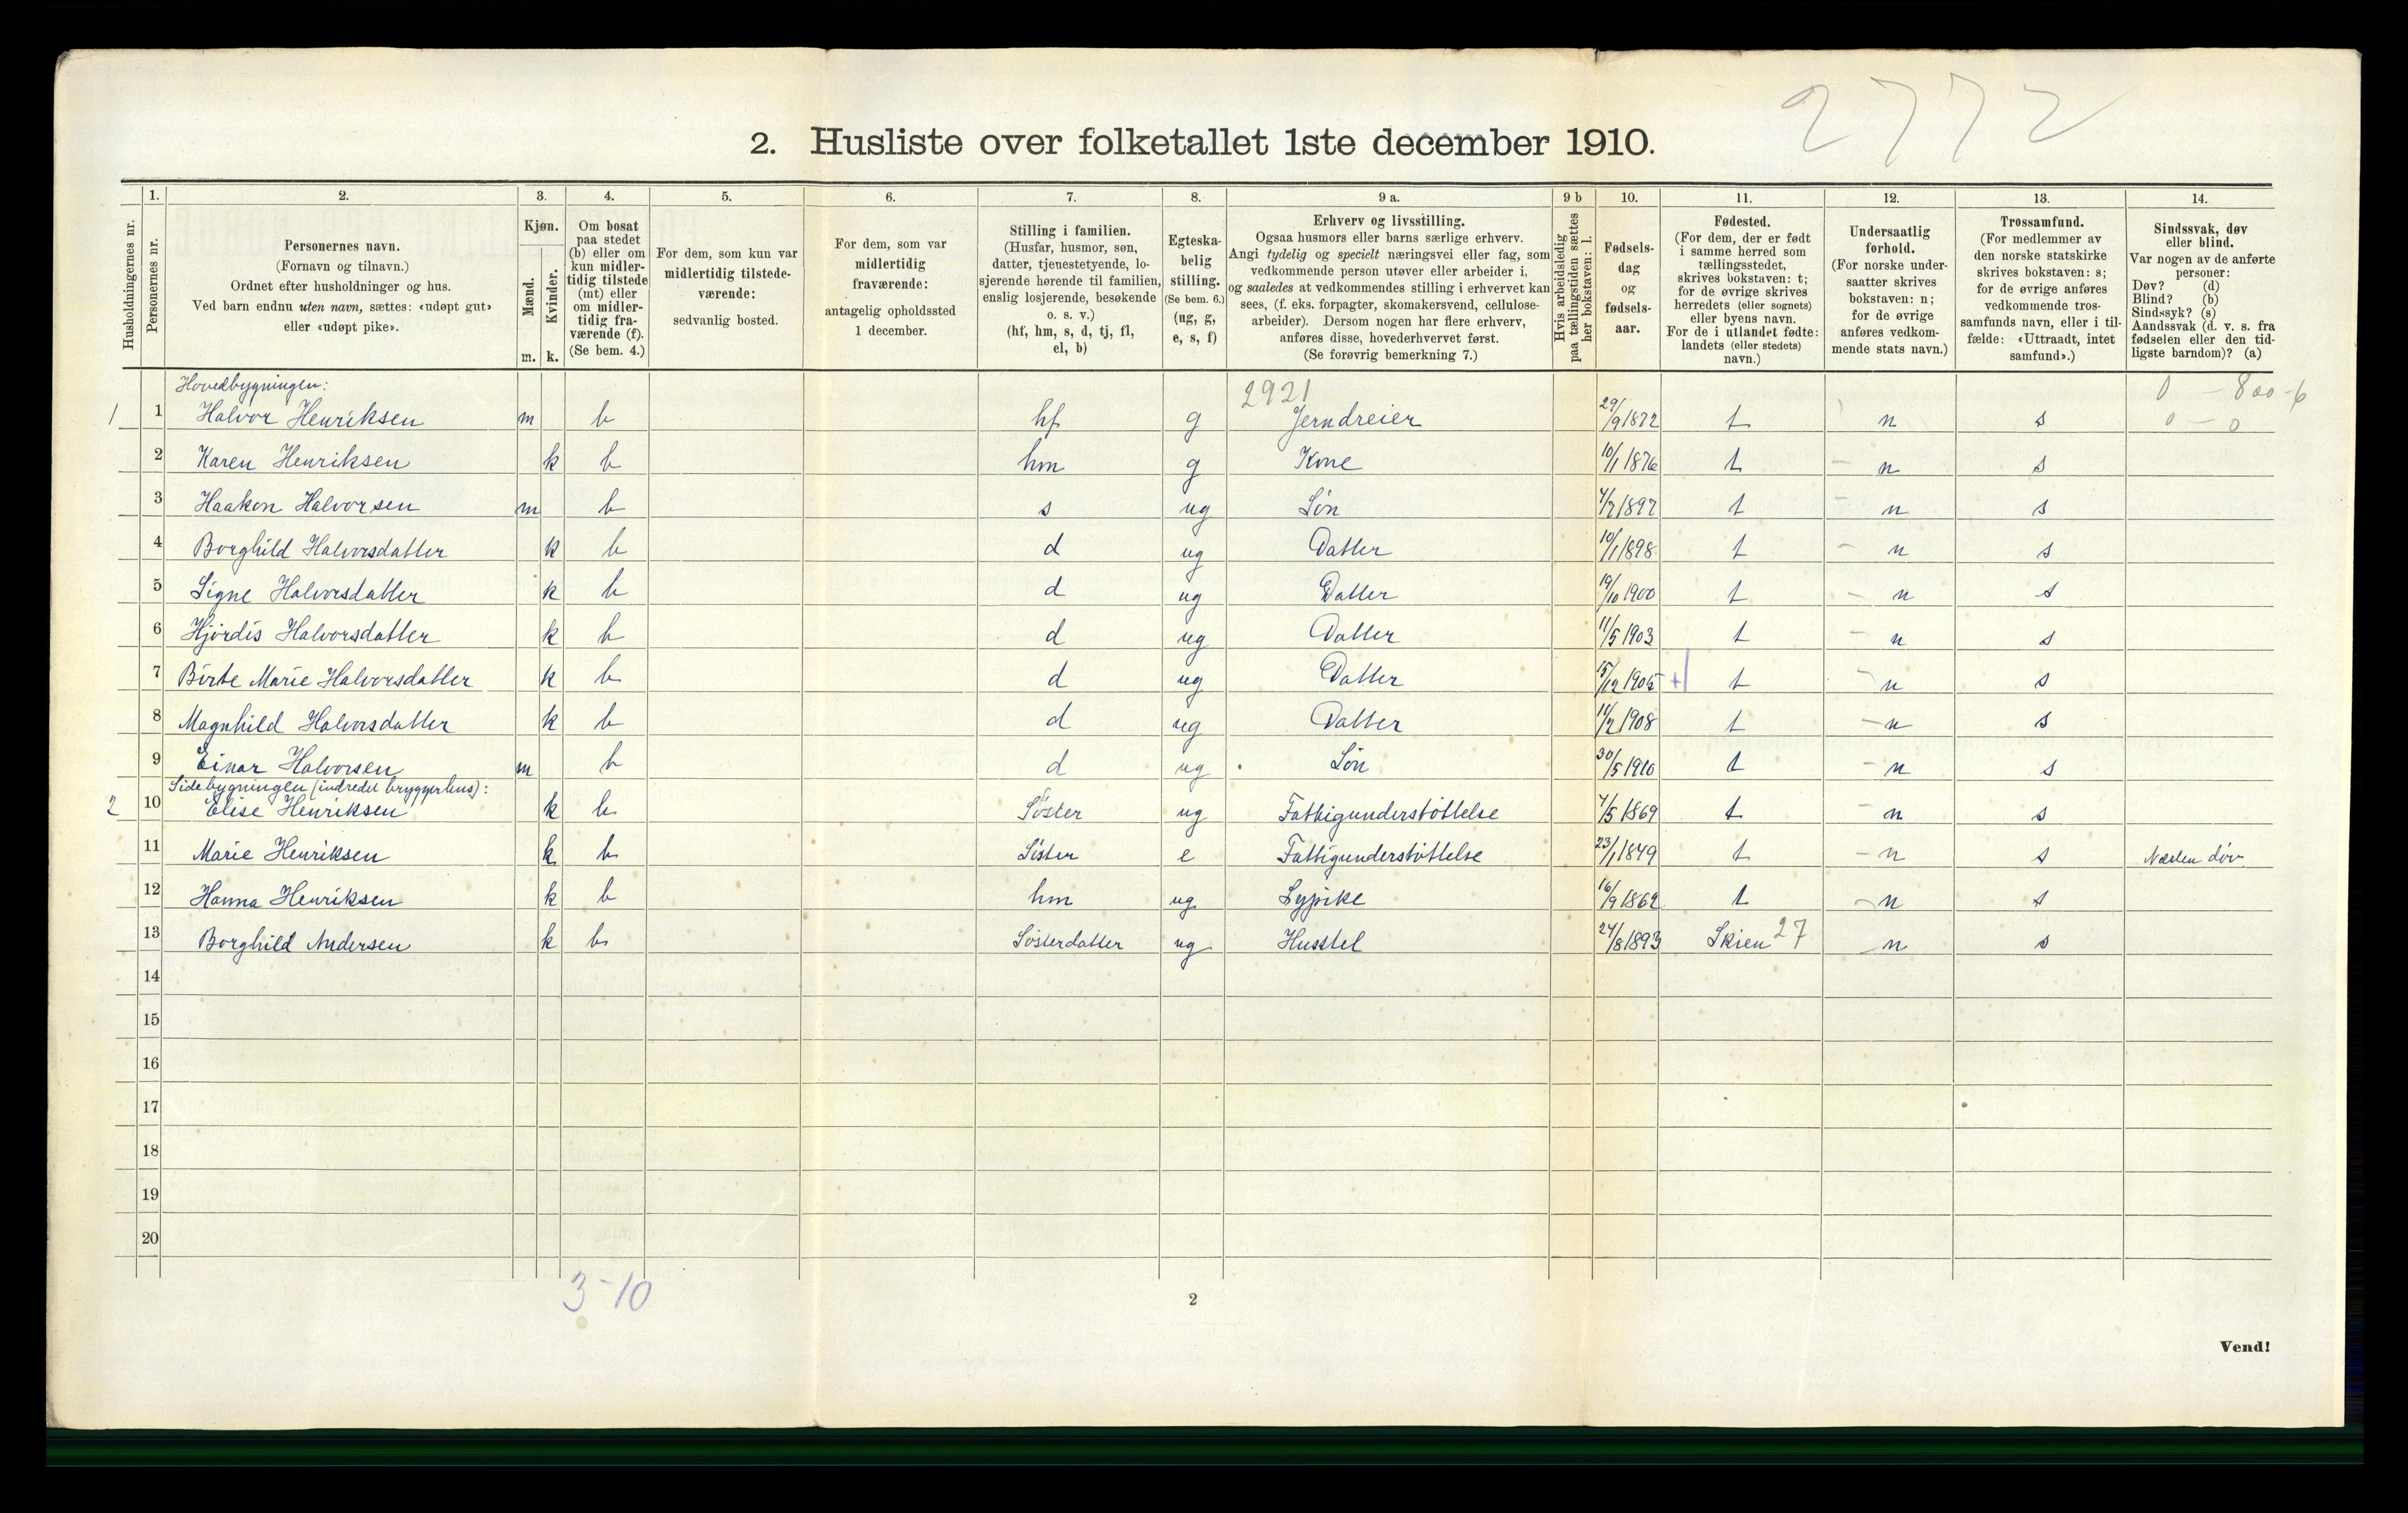 2772
2. Husliste over folketallet 1ste december 1910.
Husholdningernes nr.
1. Personernes nr.
2. Personernes navn.
(Fornavn og tilnavn.)
Ordnet efter husholdninger og hus.
Ved barn endnu uten navn, sættes: «udøpt gut»
eller «udøpt pike».
3. Kjøn.
Mænd. m.
Kvinder. k.
4. Om bosat
paa stedet
(b) eller om
kun midler-
tidig tilstede
(mt) eller
om midler-
tidig fra-
værende (f).
(Se bem. 4.)
5. For dem, som kun var
midlertidig tilstede-
værende:
sedvanlig bosted.
6. For dem, som var
midlertidig
fraværende:
antagelig opholdssted
1 december.
7. Stilling i familien.
(Husfar, husmor, søn,
datter, tjenestetyende, lo-
sjerende hørende til familien,
enslig losjerende, besøkende
o. s. v.)
(hf, hm, s, d, tj, fl,
el, b)
8. Egteska-
belig
stilling.
(Se bem. 6.)
(ug, g,
e, s, f)
9 a. Erhverv og livsstilling.
Ogsaa husmors eller barns særlige erhverv.
Angi tydelig og specielt næringsvei eller fag, som
vedkommende person utøver eller arbeider i,
og saaledes at vedkommendes stilling i erhvervet kan
sees, (f. eks. forpagter, skomakersvend, cellulose-
arbeider). Dersom nogen har flere erhverv,
anføres disse, hovederhvervet først.
(Se forøvrig bemerkning 7.)
9 b Hvis arbeidsledig
paa tællingstiden sættes
her bokstaven: l.
10. Fødsels-
dag
og
fødsels-
aar.
11. Fødested.
(For dem, der er født
i samme herred som
tællingsstedet,
skrives bokstaven: t;
for de øvrige skrives
herredets (eller sognets)
eller byens navn.
For de i utlandet fødte:
landets (eller stedets)
navn.)
12. Undersaatlig
forhold.
(For norske under-
saatter skrives
bokstaven: n;
for de øvrige
anføres vedkom-
mende stats navn.)
13. Trossamfund.
(For medlemmer av
den norske statskirke
skrives bokstaven: s;
for de øvrige anføres
vedkommende tros-
samfunds navn, eller i til-
fælde: «Uttraadt, intet
samfund».)
14. Sindssvak, døv
eller blind.
Var nogen av de anførte
personer:
Døv? (d)
Blind? (b)
Sindssyk? (s)
Aandssvak (d. v. s. fra
fødselen eller den tid-
ligste barndom)? (a)
Hovedbygningen: 2921 0 - 800 - 6
1 1 Halvor Henriksen m b hf g Jerndreier 29/9 1872 t n s 0 - 0
2 Karen Henriksen k b hm g Kone 10/1 1876 t n s
3 Haakon Halvorsen m b s ug Søn 4/2 1897 t n s
4 Borghild Halvorsdatter k b d ug Datter 10/1 1898 t n s
5 Signe Halvorsdatter k b d ug Datter 19/10 1900 t n s
6 Hjördis Halvorsdatter k b d ug Datter 11/5 1903 t n s
7 Birte Marie Halvorsdatter k b d ug Datter 15/12 1905 t n s
8 Magnhild Halvorsdatter k b d ug Datter 11/2 1908 t n s
9 Einar Halvorsen m b d ug Søn 30/5 1910 t n s
Sidebygningen (indredet bryggerhus):
2 10 Elise Henriksen k b Søster ug Fattigunderstöttelse 4/5 1869 t n s
11 Marie Henriksen k b Søster e Fattigunderstöttelse 23/1 1849 t n s Næsten døv
12 Hanna Henriksen k b hm ug Sypike 16/9 1862 t n s
13 Borghild Andersen k b Søsterdatter ug Husstel 24/8 1893 Skien 27 n s
14
15
16
17
18
19
20
3-10
2
Vend!